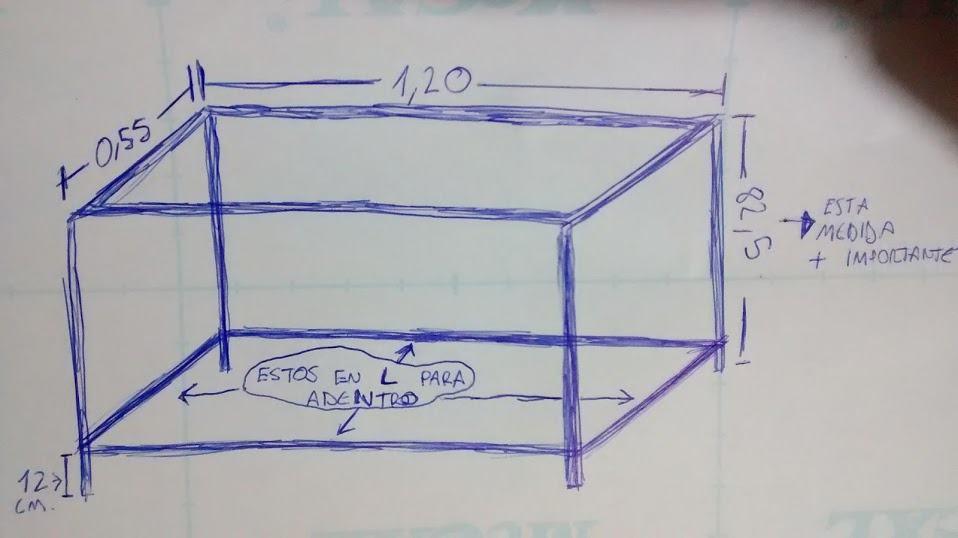 1,20
0,55
82,5
ESTA
MEDIDA
+ IMPORTANTE
ESTOS EN L PARA
ADENTRO
12
CM.